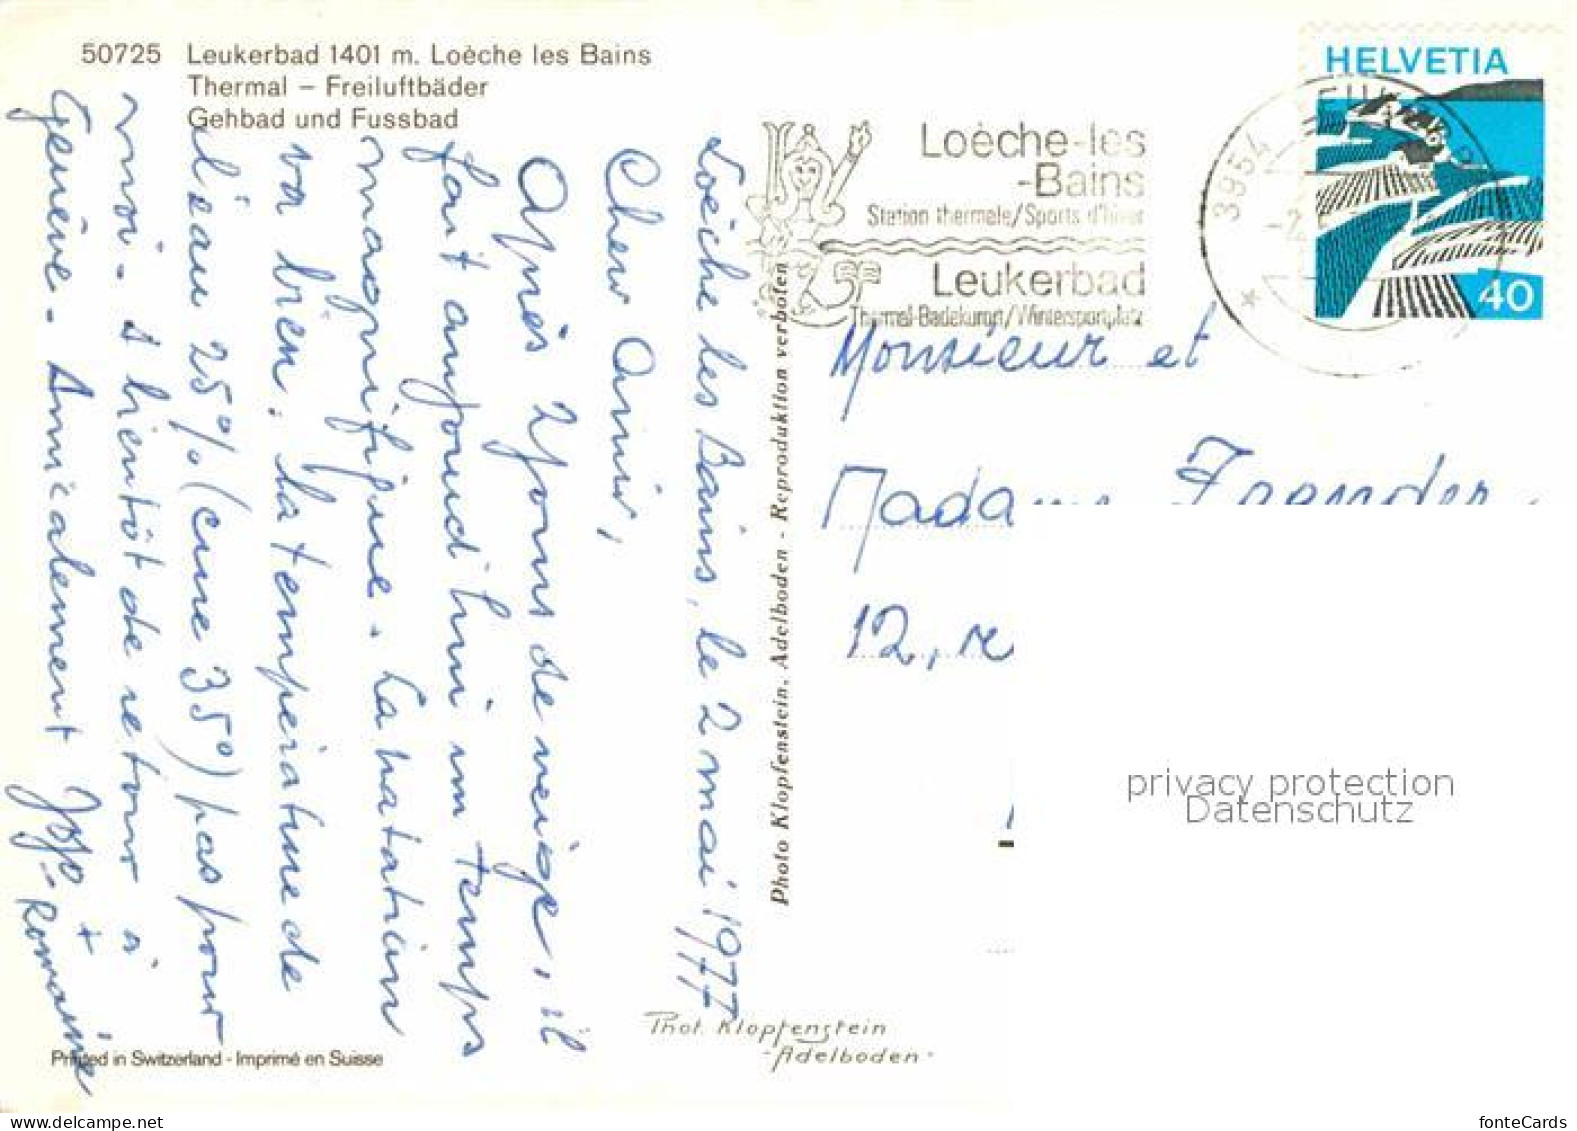 50725 Leukerbad 1401 m. Loèche les Bains
Thermal – Freiluftbäder
Gehbad und Fussbad
Loèche les Bains, le 2 mai 1977
Chers Amis,
Après 2 jours de neige, il
fait aujourd'hui un temps
magnifique. La natation
va bien. La température de
l'eau 25% (cure 35°) pas pour
moi. A bientôt de retour à
Genève. Amicalement Jojo +
Romaine
Printed in Switzerland - Imprimé en Suisse
Photo Klopfenstein, Adelboden - Reproduktion verboten
Phot. Klopfenstein
-Adelboden-
Loèche-les
-Bains
Station thermale/Sports d'hiver
Leukerbad
Thermal-Badekurort/Wintersportplatz
3954
HELVETIA
40
Monsieur et
Mada
12, r
privacy protection
Datenschutz
www.delcampe.net
fonteCards